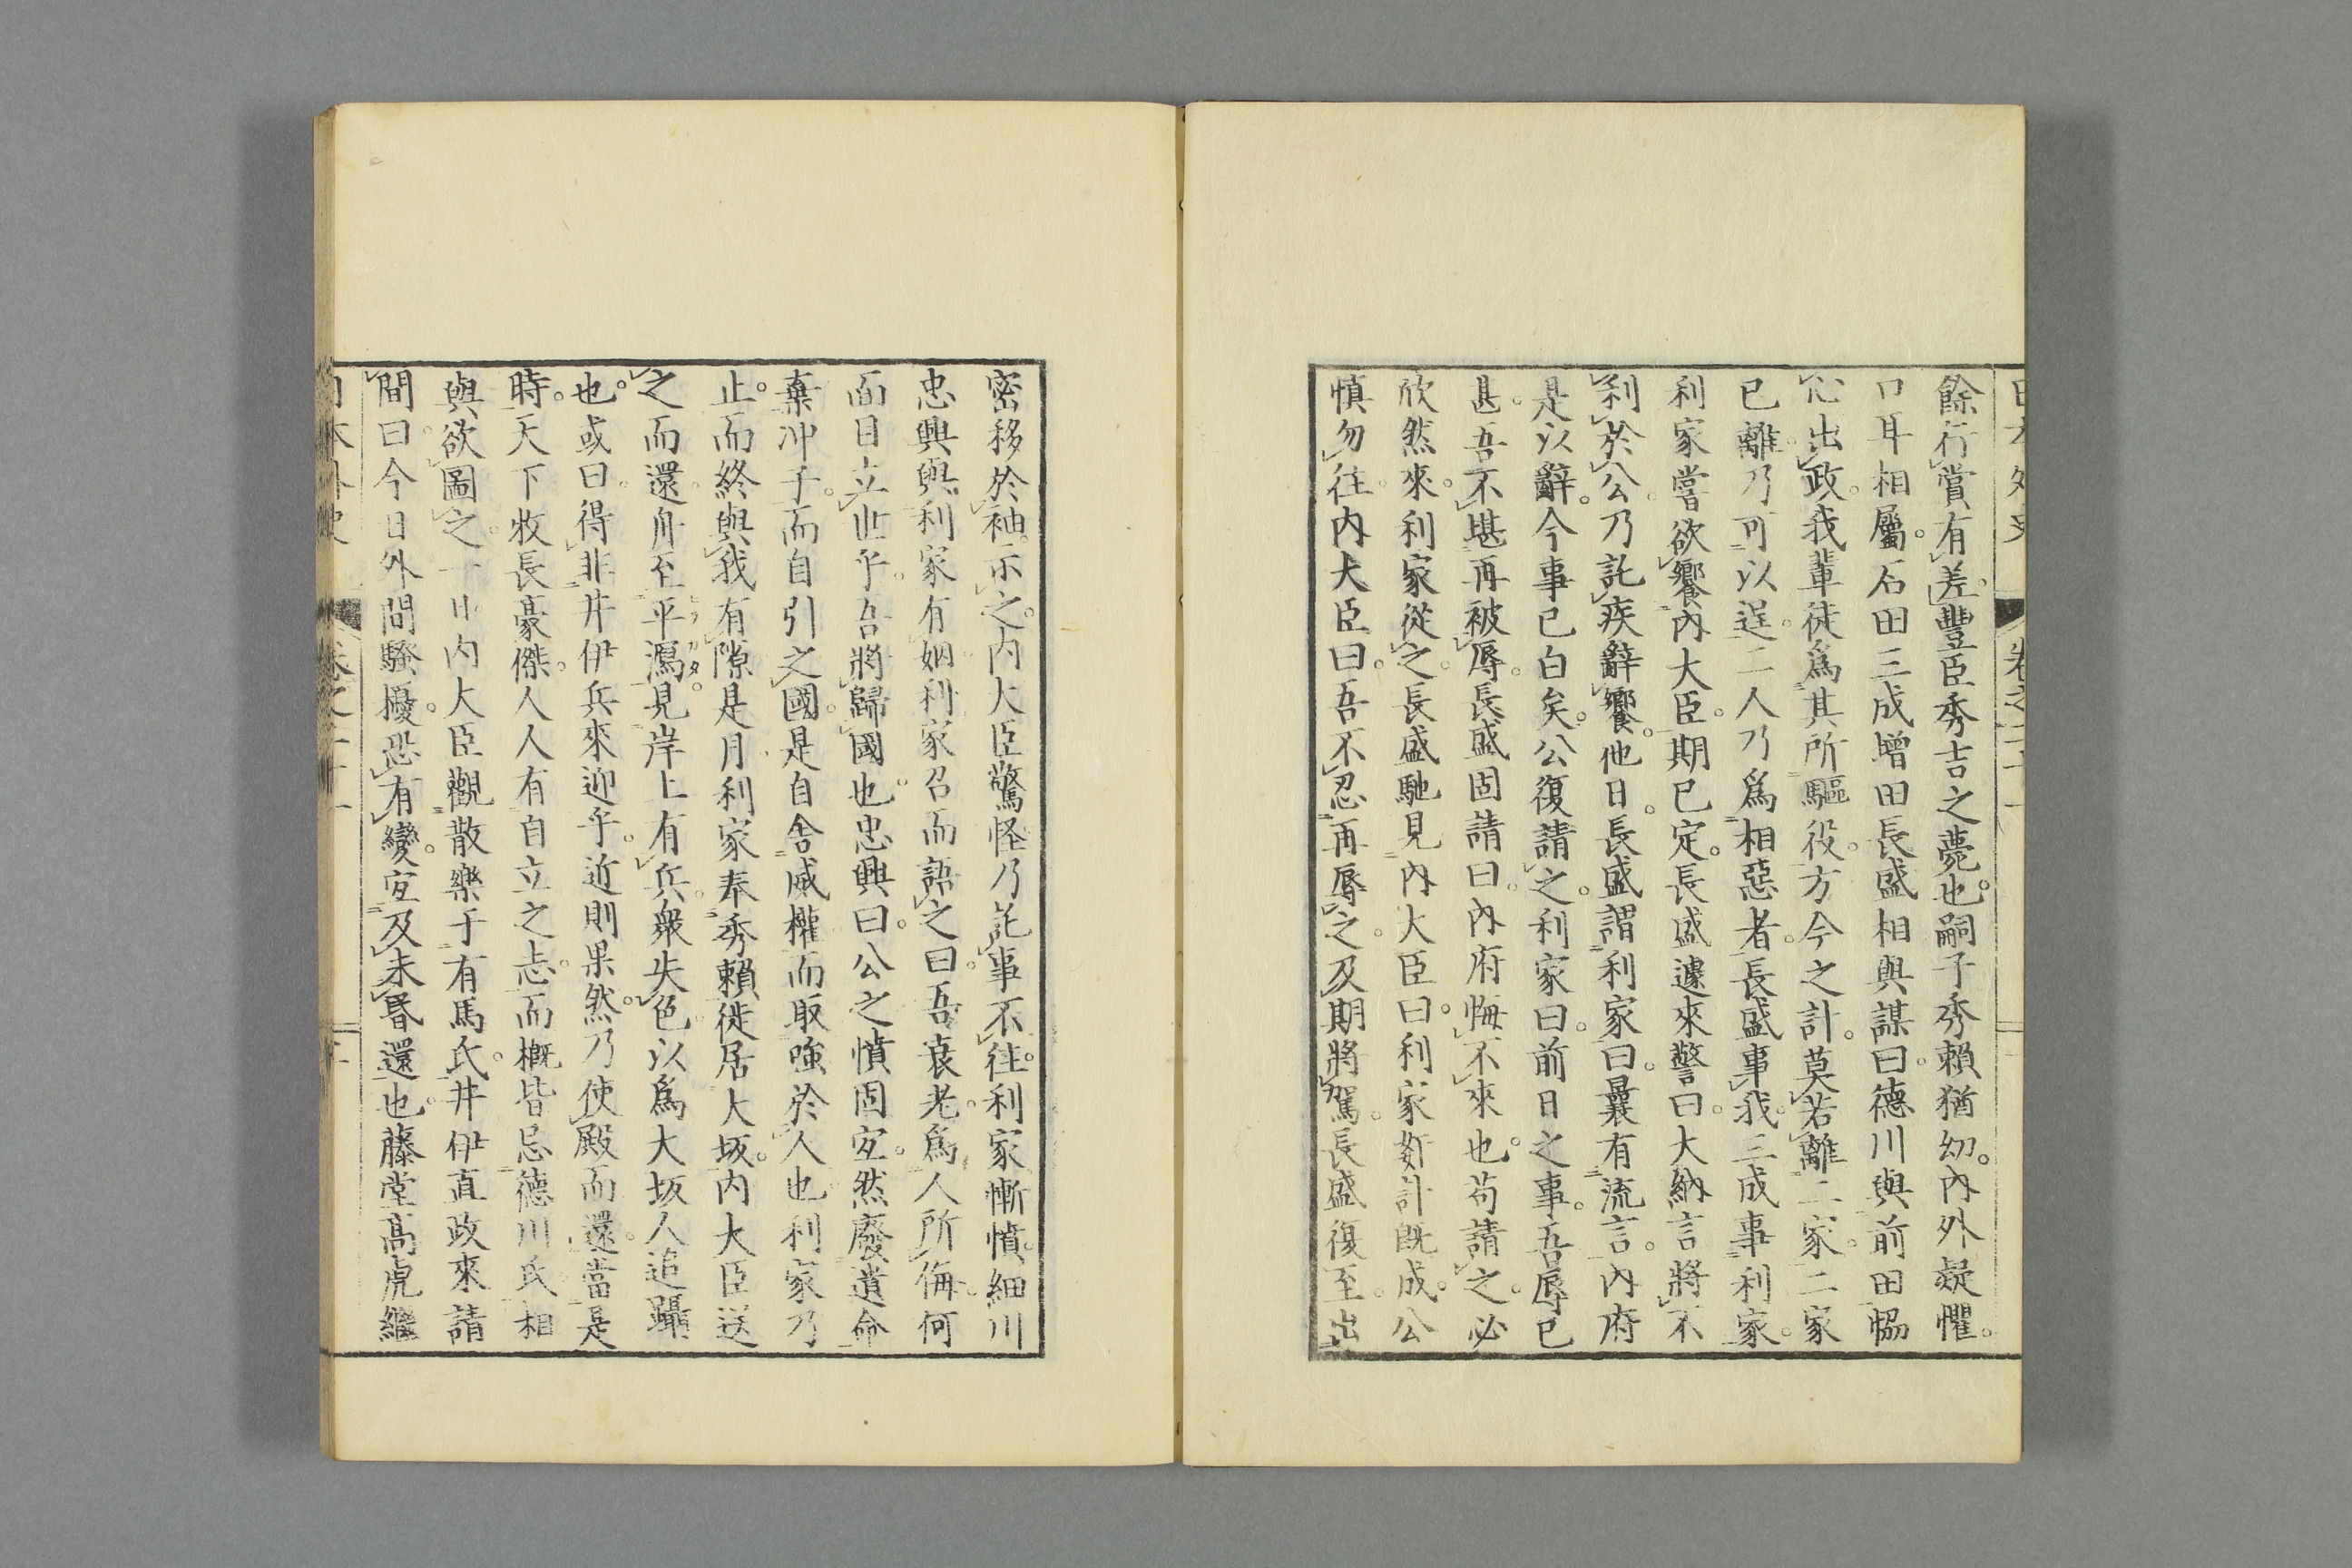 餘行賞有差。豐臣秀吉之薨也。嗣子秀賴猶幼。內外疑懼。
口耳相屬。石田三成增田長盛相與謀曰。德川與前田恊
心出政。我輩徒爲其所驅役。方今之計。莫若離二家。二家
已離。乃可以逞。二人乃爲相惡者。長盛事我。三成事利家。
利家嘗欲饗內大臣。期已定。長盛遽來警曰。大納言將不
利於公。乃託疾辭饗。他日。長盛謂利家曰。曩有流言。內府
是以辭。今事已白矣。公復請之。利家曰。前日之事。吾辱已
甚。吾不堪再被辱。長盛固請曰。內府悔不來也。苟請之。必
欣然來。利家從之。長盛馳見內大臣曰。利家姧計既成。公
愼勿往。內大臣曰。吾不忍再辱之。及期將駕。長盛復至。出
密移於袖。示之。內大臣驚怪乃託事不往。利家慚憤。細川
忠興與利家有姻。利家召而語之曰。吾衰老。爲人所侮。何
面目立世乎。吾將歸國也。忠興曰。公之憤固宜。然廢遺命
棄冲子。而自引之國。是自舍威權而取強於人也。利家乃
止。而終與我有隙。是月利家奉秀賴徙居大坂。內大臣送
之而還。舟至平瀉。見岸上有兵。衆失色。以爲大坂人追躡
也。或曰。得非井伊兵來迎乎。近則果然。乃使殿而還。當是
時。天下牧長豪傑。人人有自立之志。而概皆忌德川氏。相
與欲圖之。一日內大臣觀散樂于有馬氏。井伊直政來請
間曰。今日外間騷擾。恐有變。宜及未昏還也。藤堂高虎繼
日本外史 卷之二十一